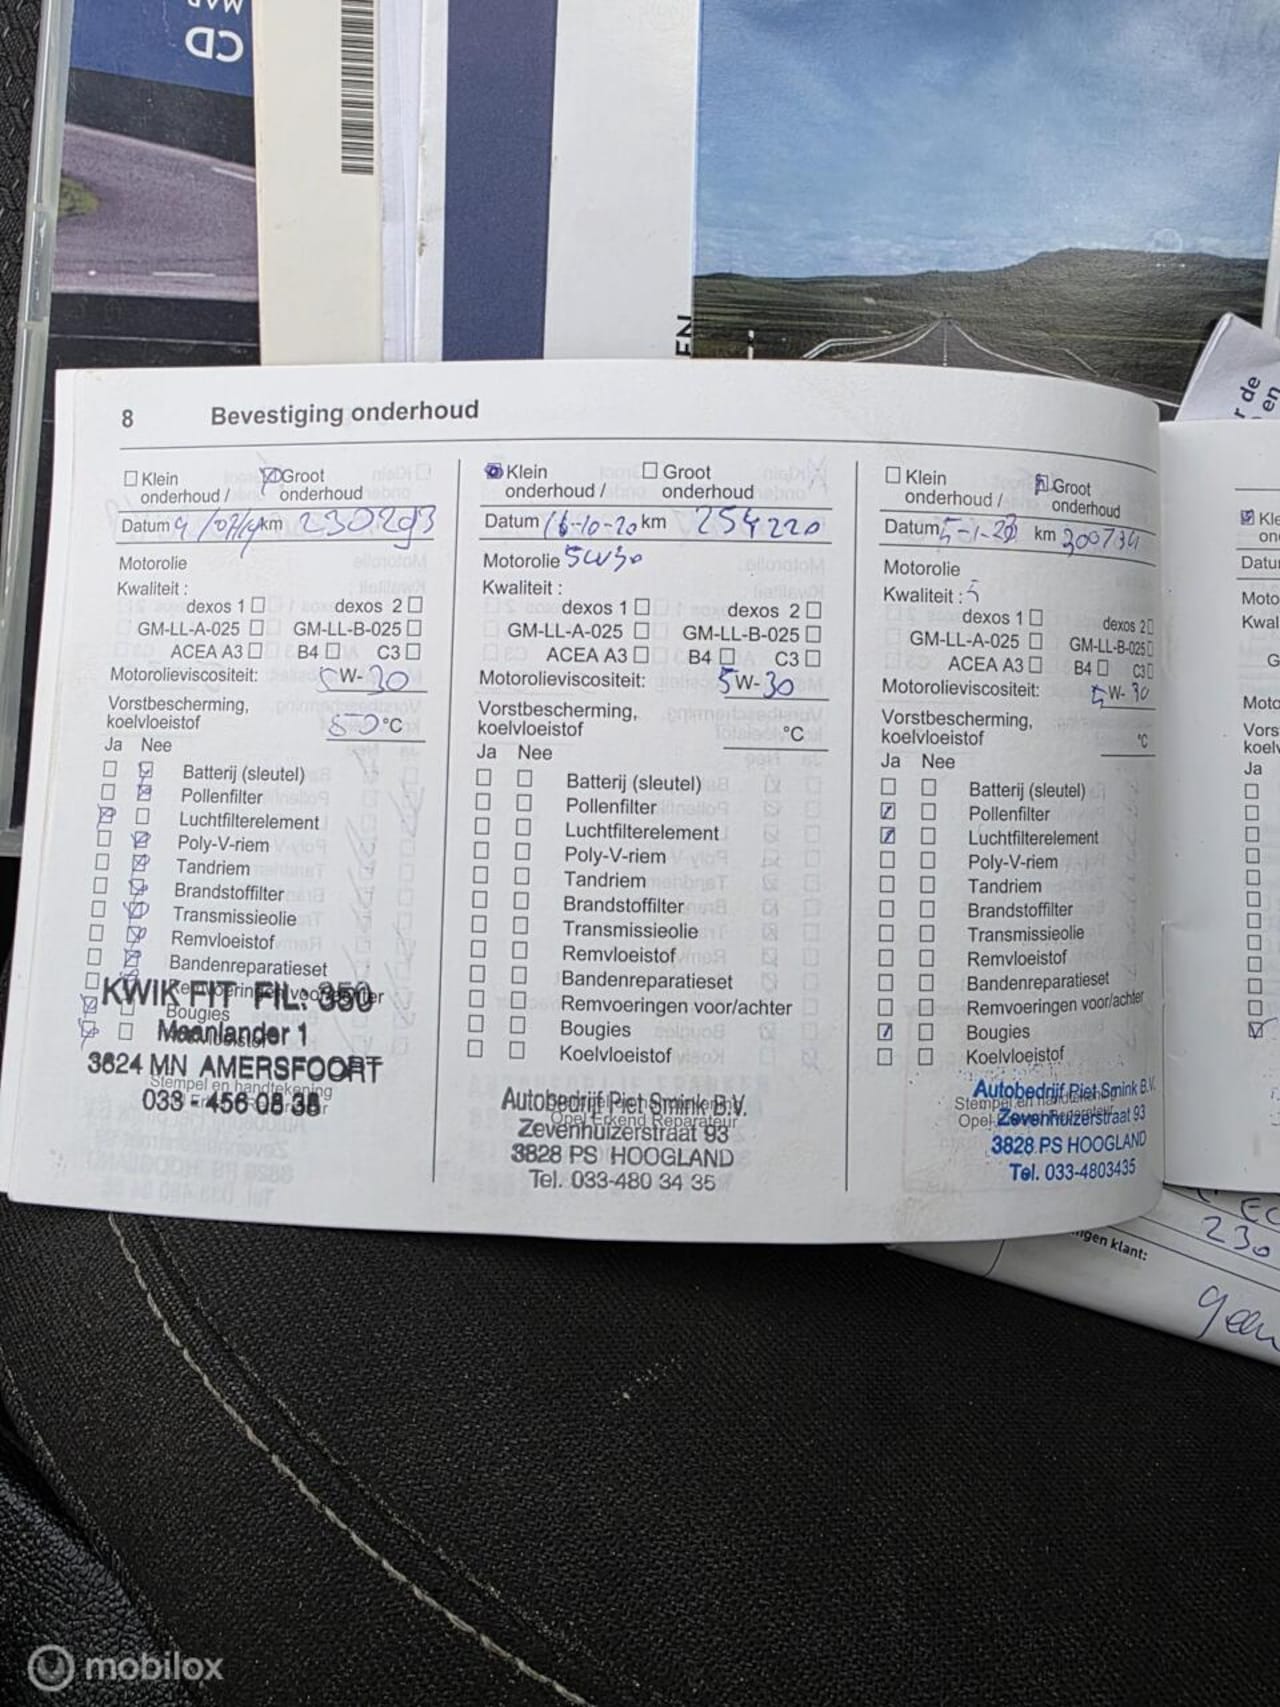 CD
EN
r de
en
8 Bevestiging onderhoud
Klein onderhoud / Groot onderhoud
Datum km 230293
Motorolie
Kwaliteit :
dexos 1 dexos 2
GM-LL-A-025 GM-LL-B-025
ACEA A3 B4 C3
Motorolieviscositeit: 5W-30
Vorstbescherming,
koelvloeistof °C
Ja Nee
Batterij (sleutel)
Pollenfilter
Luchtfilterelement
Poly-V-riem
Tandriem
Brandstoffilter
Transmissieolie
Remvloeistof
Bandenreparatieset
Remvoeringen voor/achter
Bougies
Koelvloeistof
Stempel en handtekening
KWIK FIT FIL. 350
Maanlander 1
3824 MN AMERSFOORT
033 - 456 08 38
Klein onderhoud / Groot onderhoud
Datum 16-10-20 km 254220
Motorolie 5W30
Kwaliteit :
dexos 1 dexos 2
GM-LL-A-025 GM-LL-B-025
ACEA A3 B4 C3
Motorolieviscositeit: 5W-30
Vorstbescherming,
koelvloeistof °C
Ja Nee
Batterij (sleutel)
Pollenfilter
Luchtfilterelement
Poly-V-riem
Tandriem
Brandstoffilter
Transmissieolie
Remvloeistof
Bandenreparatieset
Remvoeringen voor/achter
Bougies
Koelvloeistof
Opel Erkend Reparateur
Autobedrijf Piet Smink B.V.
Zevenhuizerstraat 93
3828 PS HOOGLAND
Tel. 033-480 34 35
Klein onderhoud / Groot onderhoud
Datum km 300734
Motorolie
Kwaliteit : 5
dexos 1 dexos 2
GM-LL-A-025 GM-LL-B-025
ACEA A3 B4 C3
Motorolieviscositeit: 5W-30
Vorstbescherming,
koelvloeistof °C
Ja Nee
Batterij (sleutel)
Pollenfilter
Luchtfilterelement
Poly-V-riem
Tandriem
Brandstoffilter
Transmissieolie
Remvloeistof
Bandenreparatieset
Remvoeringen voor/achter
Bougies
Koelvloeistof
Stempel en
Opel
Autobedrijf Piet Smink B.V.
Zevenhuizerstraat 93
3828 PS HOOGLAND
Tel. 033-4803435
Kle
on
Datu
Moto
Kwal
G
Moto
Vors
koelv
Ja
230
ngen klant:
geen
mobilox